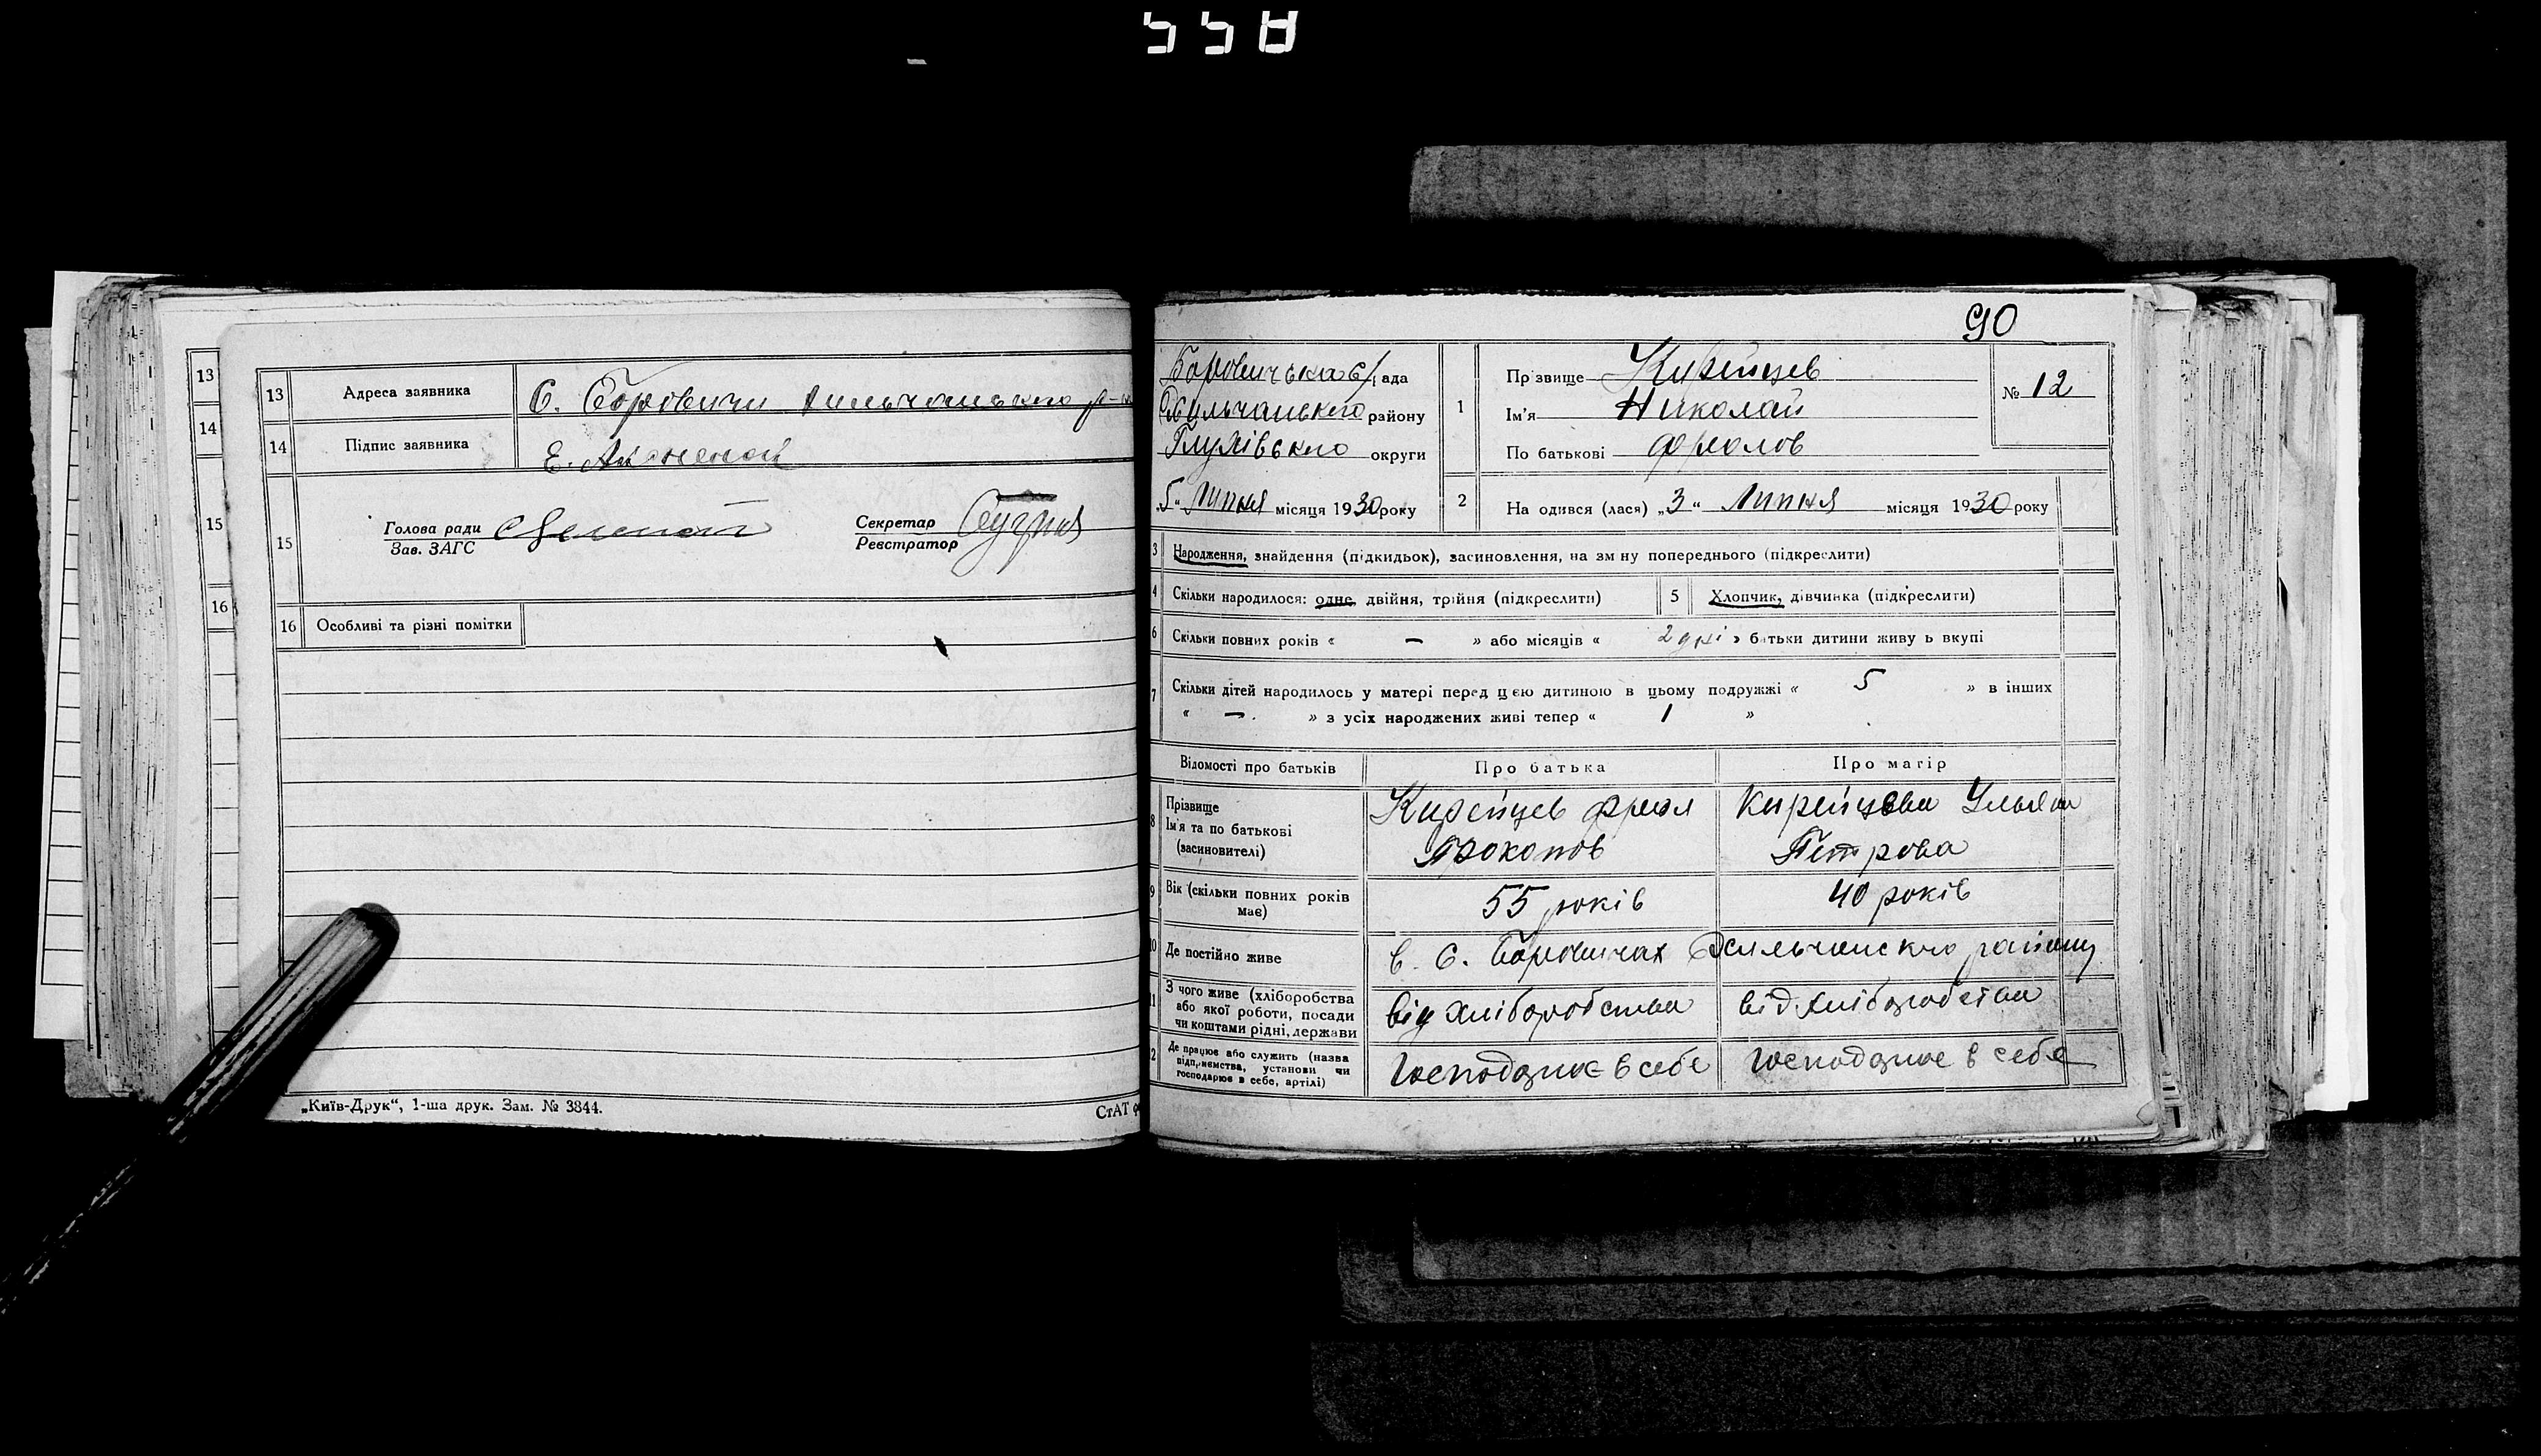 558
13
14
15
16
13 Адреса заявника С. Боровичи Хильчанського р-н
14 Підпис заявника Е.
15 Голова ради
Зав. ЗАГС
Секретар
Реєстратор
16 Особливі та різні помітки
„Київ-Друк“, 1-ша друк. Зам. № 3844.
СтАТ
90
Боровичська с/рада
Хильчанського району
Глухівського округи
„5“ Липня місяця 1930 року
1 Прізвище Кирейцев
Ім'я Николай
По батькові Фролов
№ 12
2 На одився (лася) „3“ Липня місяця 1930 року
3 Народження, знайдення (підкидьок), засиновлення, на зм ну попереднього (підкреслити)
4 Скільки народилося: одне, двійня, трійня (підкреслити)
5 Хлопчик, дівчинка (підкреслити)
6 Скільки повних років « — » або місяців « 2 дні » батьки дитини живу ь вкупі
7 Скільки дітей народилось у матері перед цією дитиною в цьому подружжі « 5 » в інших
« —. » з усіх народжених живі тепер « 1 »
Відомості про батьків
Про батька
Про матір
8 Прізвище
Ім'я та по батькові
(засиновителі)
Кирейцев Фрол
Прокопов
Кирейцева Ульяна
Петрова
9 Вік (скільки повних років
має)
55 років
40 років
10 Де постійно живе
в с. Боровичах Хильчанского району
11 З чого живе (хліборобства
або якої роботи, посади
чи коштами рідні, держави
від хліборобства
від хліборобства
12 Де працює або служить (назва
підприємства, установи чи
господарює в себе, артілі)
господарює в себе
господарює в себе